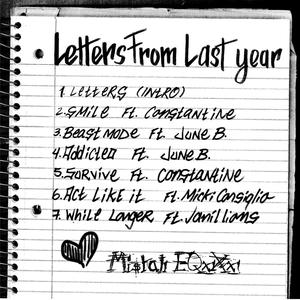 Letters From Last year
1. Letters (INTRO)
2. Smile Ft. Constantine
3. Beast mode Ft. June B.
4. Addicted Ft. June B.
5. Survive Ft. Constantine
6. Act Like it Ft. Micki Consiglio
7. While Longer Ft. Jamillions